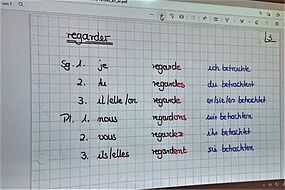 regarder
3
Sg. 1. je regarde ich betrachte
2. tu regardes du betrachtest
3. il/elle/on regarde er/sie/es betrachtet
Pl. 1. nous regardons wir betrachten
2. vous regardez ihr betrachtet
3. ils/elles regardent sie betrachten